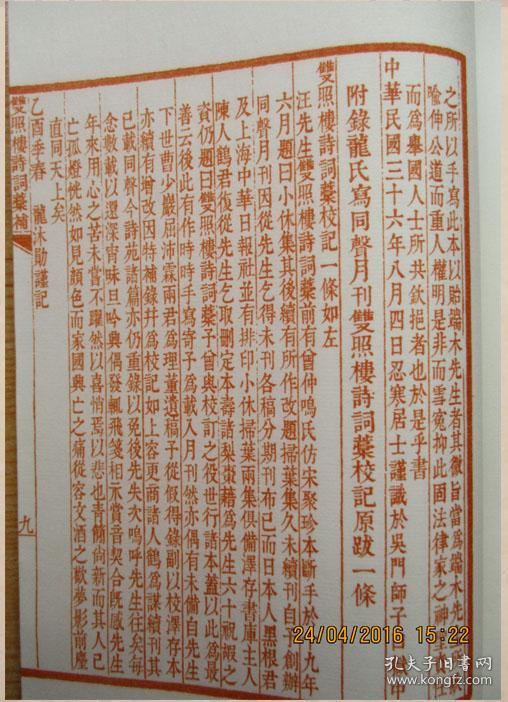 之所以手寫此本以貽端木先生者其微旨當爲端木先
喻伸公道而重人權明是非而雪寃抑此固法律家之神聖
而爲舉國人士所共欽挹者也於是乎書
中華民國三十六年八月四日忍寒居士謹識於吳門師子口
附錄龍氏寫同聲月刊雙照樓詩詞藁校記原跋一條
雙照樓詩詞藁校記一條如左
汪先生雙照樓詩詞藁前有曾仲鳴氏仿宋聚珍本斷手於十九年
六月題曰小休集其後續有所作改題掃葉集久未續刊自予創辦
同聲月刊因從先生乞得未刊各稿分期刊布已而日本人黑根君
及上海中華日報社並有排印小休掃葉兩集俱備澤存書庫主人
陳人鶴君復從先生乞取刪定本壽諸梨棗藉爲先生六十祝嘏之
資仍題曰雙照樓詩詞藁予曾與校訂之役世行諸本蓋以此爲最
善云後此有作時時手寫寄子爲載入月刊然亦偶有未備自先生
下世曹少巖屈沛霖兩君爲理董遺稿予從假得錄副以校澤存本
亦續有增改因特補錄并爲校記如上容更商諸人鶴爲謀續刊其
已載同聲今詩苑諸篇亦仍重錄以免後先失次嗚呼先生往矣每
念敝載以還深宵昧旦吟興偶發輒飛箋相示賞音契合既感先生
年來用心之苦未嘗不躍然以喜悄焉以悲也青簡尙新而其人已
亡孤燈恍然如見顏色而家國興亡之痛從容文酒之歡夢影前塵
直同天上矣
乙酉季春　龍沐勛謹記
雙照樓詩詞藁補
九
24/04/2016 15:22
孔夫子旧书网
kongfz.com